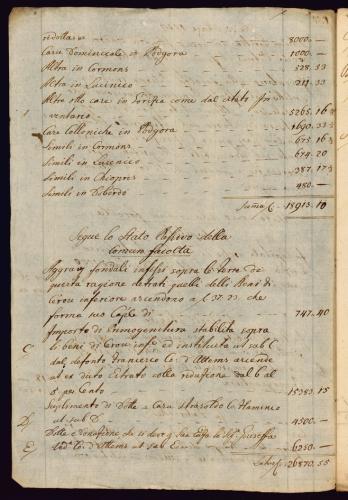 ridotta a 8000.—
Casa Dominicale in Podgora 1000.—
Altra in Cormons 528.53
Altra in Lucinico 211.33
Altre otto case in Gorizia come dal stato In
ventario 5265.16
Case Colloniche in Podgora 1690.33
Simili in Cormons 675.16
Simili in Lucenico 674.20
Simili in Chiopris 387.17
Simili in 480.—
Suma 18913.10
Segue lo Stato Passivo della
comun facoltà
Aggravj fondali infissi sopra le terre di
questa ragione detratti quelli delle Beni di
inferiore ascendono a f 37.23. che
forma suo Cap.le di 747.40
Importo di Primogenitura stabilita sopra
C li beni di ed instituita ut sub C
dal defonto Francesco Co: d'Attems ascende
at ex dicto Estratto colla riduzione dal 6 al
5 per Cento 15383.15
Suplimento di Dotte a Casa Strasoldo
D ut sub D. 4500.—
E Dotte e
Co: d'Attems ut sub E 6250.—
Latus 26870.55